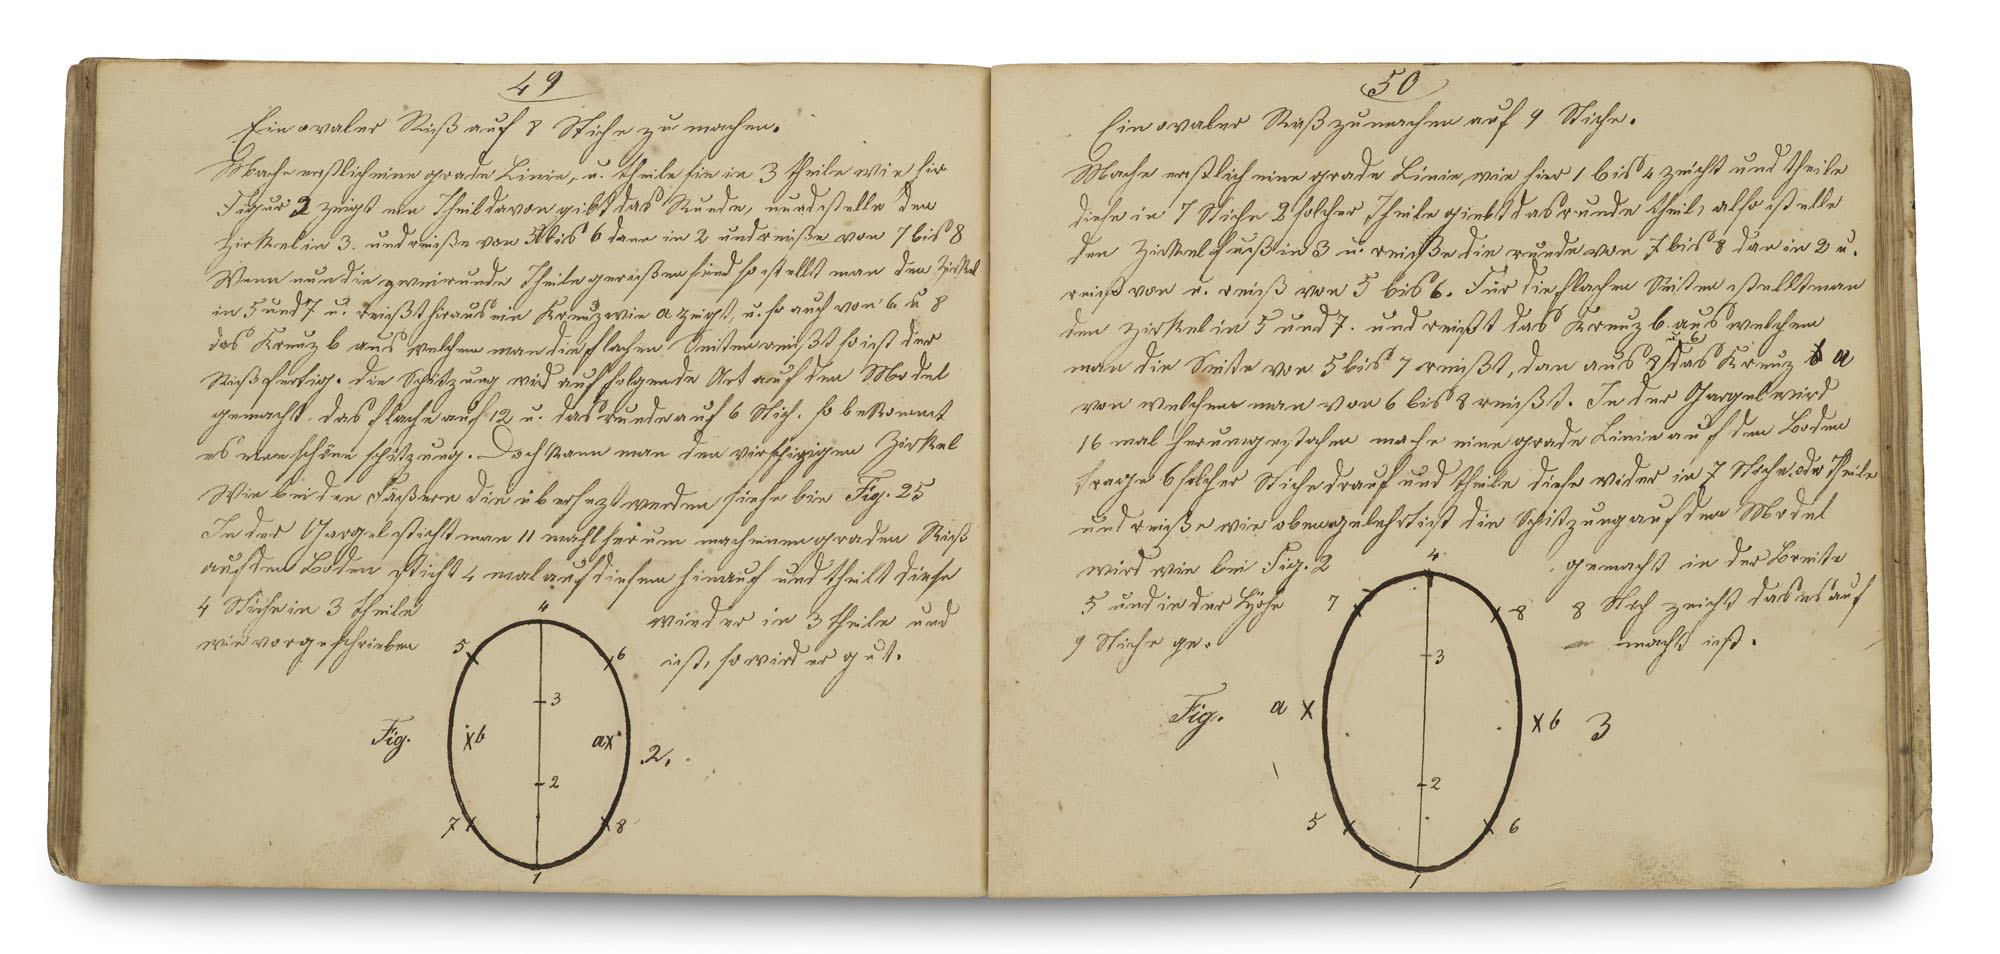 49
Ein ovaler Riß auf 8 Stiche zu machen.
Mache erstlich eine grade Linie, u. theile sie in 3 theile wie hir
Figur 2 zeigt ein Theil davon gibt das Runde, nun stelle den
Zirkel in 3. und reiße von 5 bis 6 dann in 2 und reiße von 7 bis 8
Wenn nun die zwei runde Theile gerißen sind so stellt man den Zirkel
in 5 und 7 u. reißt hiraus ein Kreuz wie a zeigt, u. so auch von 6 u 8
das Kreuz b aus welchen man die flachen Seiten reißt so ist der
Riß fertig. die Schützung wird auf folgende Art auf den Model
gemacht. das flache auf 12 u. das runde auf 6 Stich. so bekommt
es eine schöne schützung. Doch kann man den virschigigen Zirkel
Wie bei den Fäßern die übersezt werden siehe bie Fig. 25
In der Gargel sticht man 11 mahl herum mach einen graden Riß
auf den Boden sticht 4 mal auf diesen hinauf und theilt diese
4 Stiche in 3 theile wieder in 3 theile und
wie vorgeschrieben ist, so wird er gut.
4
5
6
3
Fig.
b
a
2.
2
7
8
1
50
Ein ovaler Riß zu machen auf 9 Stiche.
Mache erstlich eine grade Linie, wie hier 1 bis 4 zeicht und theile
diese in 7 Stiche 2 solcher Theile giebt das runde theil, also stelle
den Zirkel fuß in 3 u. reiße die runde von 7 bis 8 dan in 2 u.
reiß von u. reiß von 5 bis 6. Für die flachen Seiten stellt man
den Zirkel in 5 und 7. und reißt das Kreuz b. aus welchem
man die Seite von 5 bis 7 reißt, dan aus 8 u 6 das Kreuz a
von welchem man von 6 bis 8 reißt. In der Gargel wird
16 mal herumgestochen mache eine grade Linie auf den Boden
trage 6 solcher Stiche drauf und theile diese wider in 7 Stiche oder Theile
und reiße wie oben gelehrt ist die Schützung auf den Model
wird wie bei Fig. 2 gemacht in der Breite
5 und in der Höhe 8 Stich zeicht das es auf
9 Stiche ge. macht ist.
4
7
8
3
Fig.
a
b
3
2
5
6
1